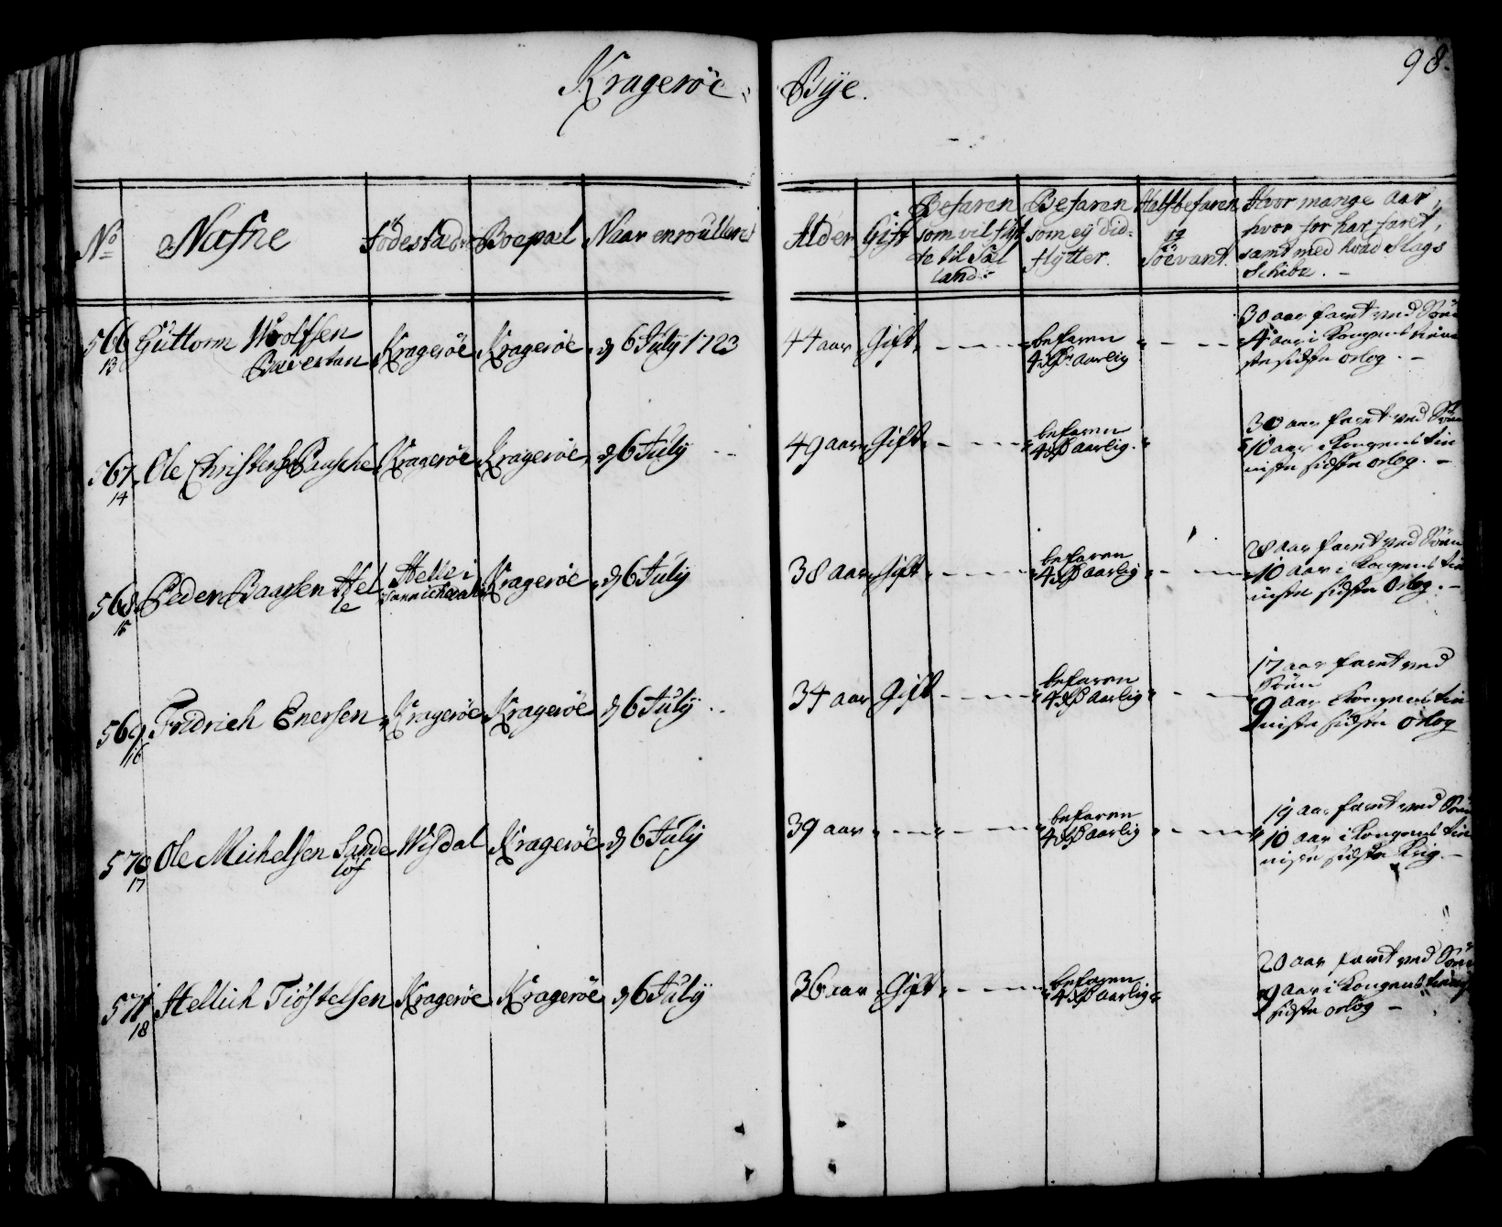 Kragerøe Bÿe. 98.
No Nafne Födestad Boepæl Naar enroulleret Alder Gift Befaren som vil flÿtte til Sæland: Befaren som eÿ did flÿtter. Halfbefaren og Söevant. Hvor mange aar, hvor for har faret, samt med hvad Slags Schibe. –
566 13 Guttorm Wolfsen Kragerøe Kragerøe d 6 Julÿ 1723 44 aar Gift befaren 4 aarlig
30 aar faret ved Söen
4 aar i Kongens
sidste orlog. –
567 14 Ole Christens Paasche Kragerøe Kragerøe d 6 Julÿ 49 aar Gift befaren 4 aarlig.
30 aar faret ved Söen
10 aar i Kongens tie
niste sidste orlog. –
568 15 Peder Baarsen Hel
le Helle i Kragerøe d 6 Julÿ 38 aar Gift befaren 4 aarlig
28 aar faret ved Söen
10 aar i Kongens tie
niste sidste Orlog. –
569 16 Fridrich Enersen Kragerøe Kragerøe d 6 Julÿ 34 aar Gift befaren 4 aarlig
17 aar faret ved
Söen
9 aar i Kongens tie
niste sidste orlog
570 17 Ole Michelsen Sande
löf Wisdal Kragerøe d 6 Julÿ 39 aar befaren 4 aarlig
19 aar faret ved Söen
10 aar i Kongens tie
niste sidste Krig. –
571 18 Hellich Tiöstelsen Kragerøe Kragerøe d 6 Julÿ 36 aar Gift befaren 4 aarlig
20 aar faret ved Söen
9 aar i Kongens
sidste orlog –